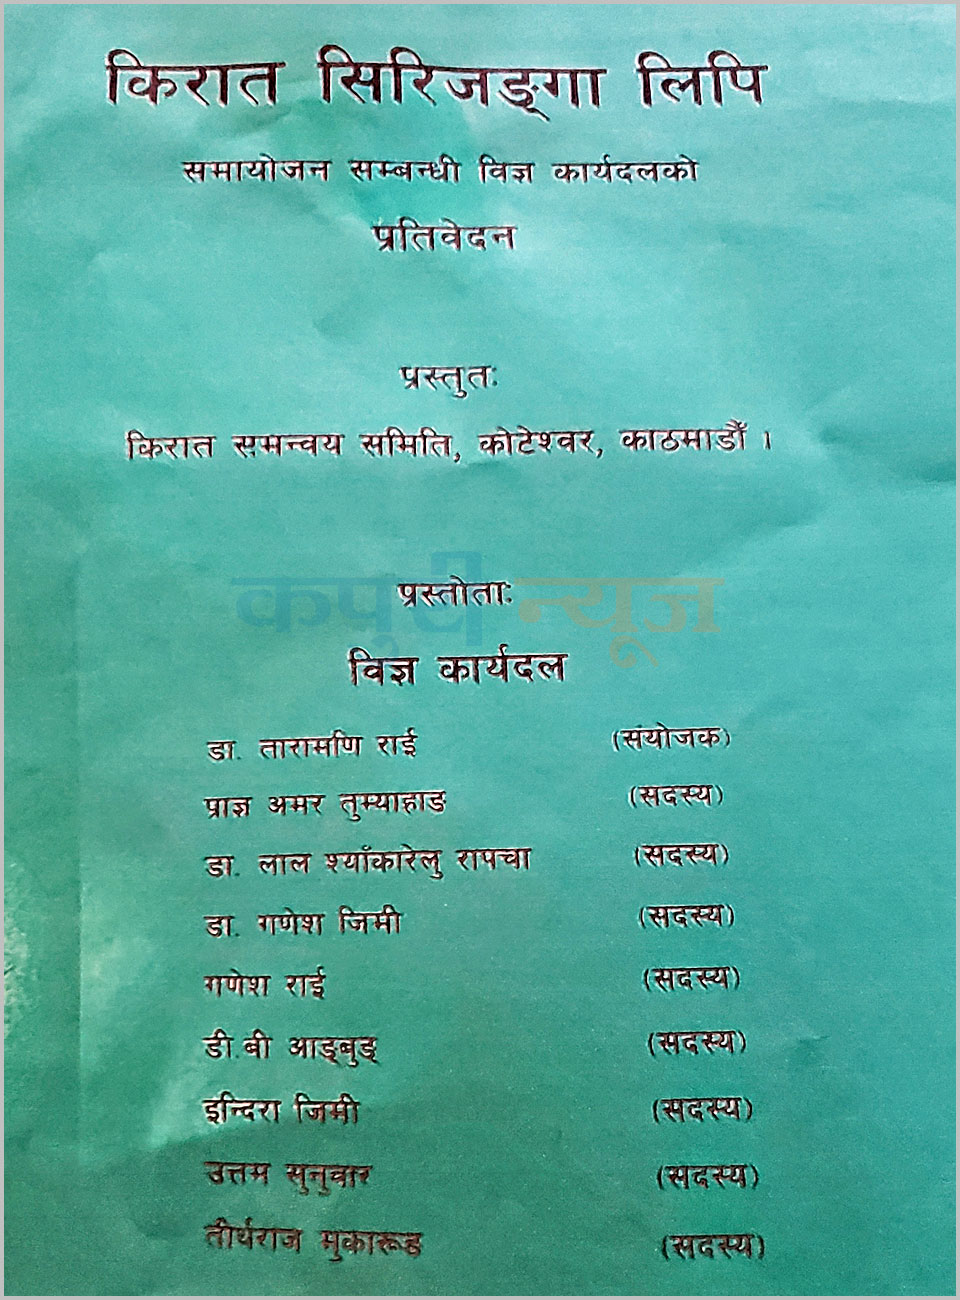 किरात सिरिजङ्गा लिपि
समायोजन सम्बन्धी विज्ञ कार्यदलको
प्रतिवेदन
प्रस्तुतः
किरात समन्वय समिति, कोटेश्वर, काठमाडौँ ।
प्रस्तोताः
विज्ञ कार्यदल
डा. तारामणि राई (संयोजक)
प्राज्ञ अमर तुम्याहाङ (सदस्य)
डा. लाल श्याँकारेलु रापचा (सदस्य)
डा. गणेश जिमी (सदस्य)
गणेश राई (सदस्य)
डी.बी आङ्बुङ् (सदस्य)
इन्दिरा जिमी (सदस्य)
उत्तम सुनुवार (सदस्य)
तीर्थराज मुकारूङ (सदस्य)